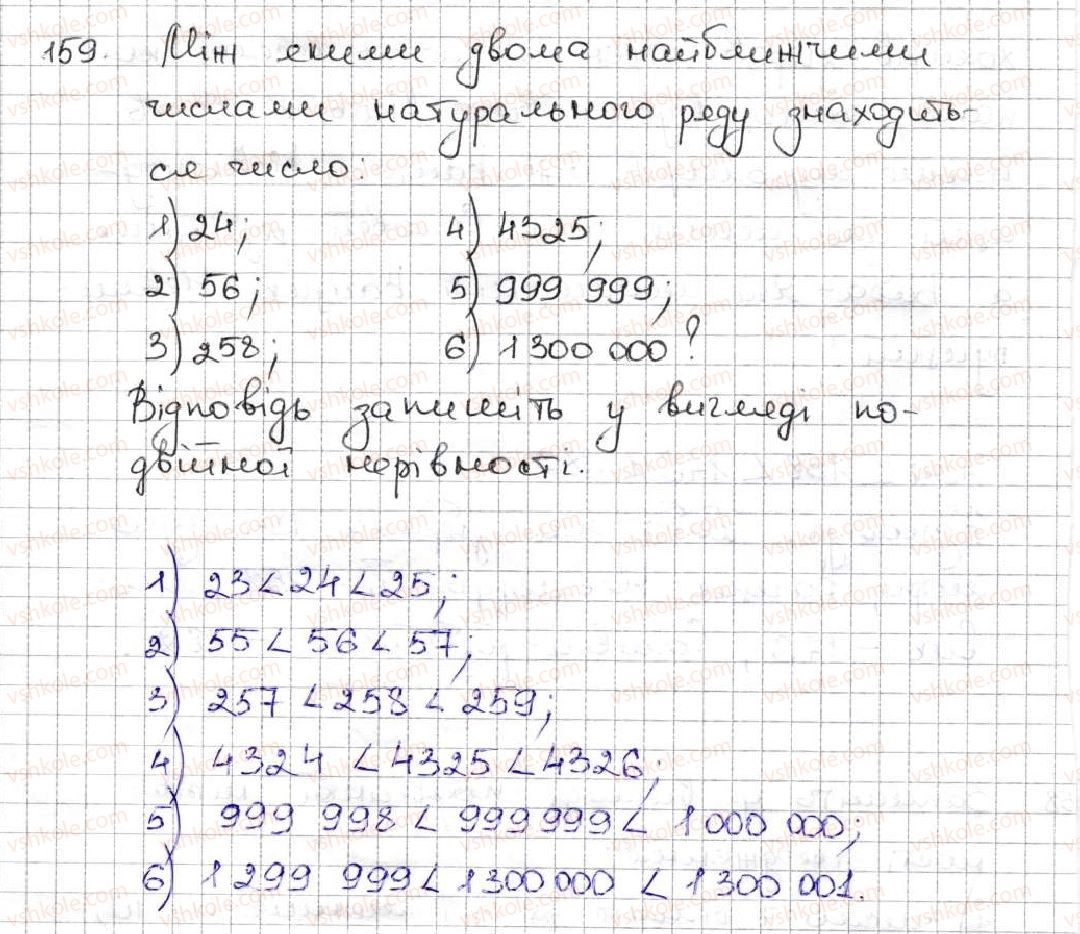 159. Між якими двома найближчими
числами натурального ряду знаходить-
ся число:
1) 24; 4) 4325;
2) 56; 5) 999 999;
3) 258; 6) 1 300 000?
Відповідь запишіть у вигляді по-
двійної нерівності.
1) 23 < 24 < 25;
2) 55 < 56 < 57;
3) 257 < 258 < 259;
4) 4324 < 4325 < 4326;
5) 999 998 < 999 999 < 1 000 000;
6) 1 299 999 < 1 300 000 < 1 300 001.